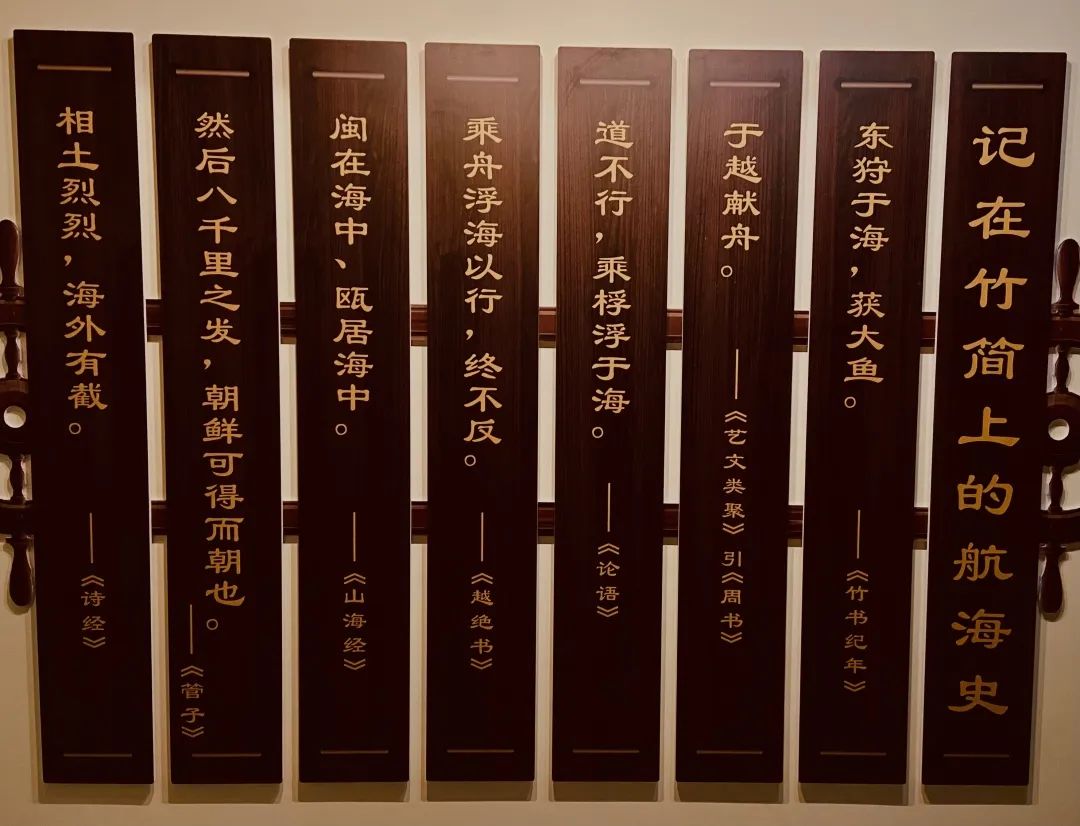 记在竹简上的航海史
东狩于海，获大鱼。
——《竹书纪年》
于越献舟。
——《艺文类聚》引《周书》
道不行，乘桴浮于海。
——《论语》
乘舟浮海以行，终不反。
——《越绝书》
闽在海中、瓯居海中。
——《山海经》
然后八千里之发，朝鲜可得而朝也。
——《管子》
相土烈烈，海外有截。
——《诗经》